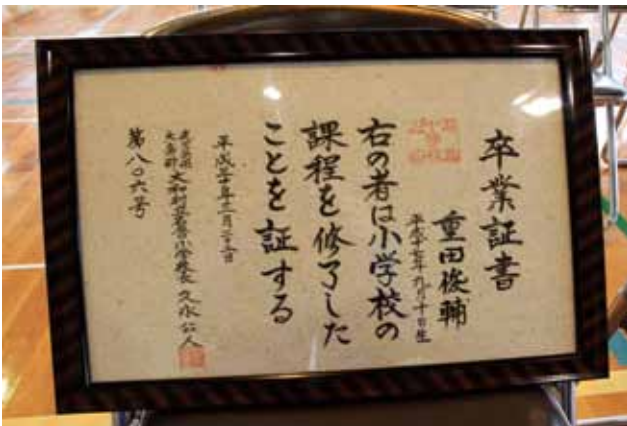 卒業証書
重田俊輔
平成十七年九月十日生
右の者は小学校の
課程を修了した
ことを証する
平成三十年三月二十三日
鹿児島県
大島郡
大和村立名音小学校長 久永公人
第八〇六号